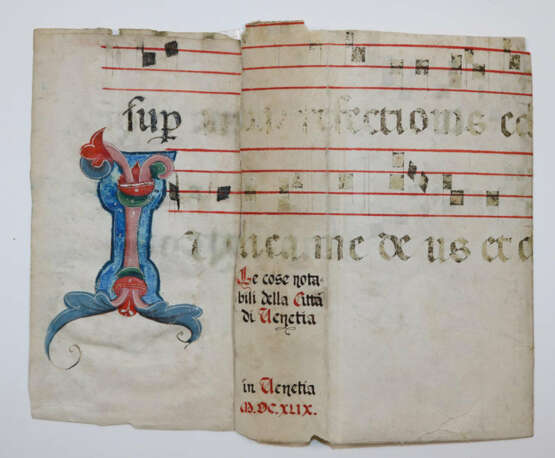 sup refectionis ed
IUdica. me de us et d
Le cose nota-
bili della Città
di Venetia
in Venetia
M.DC.XLIX.